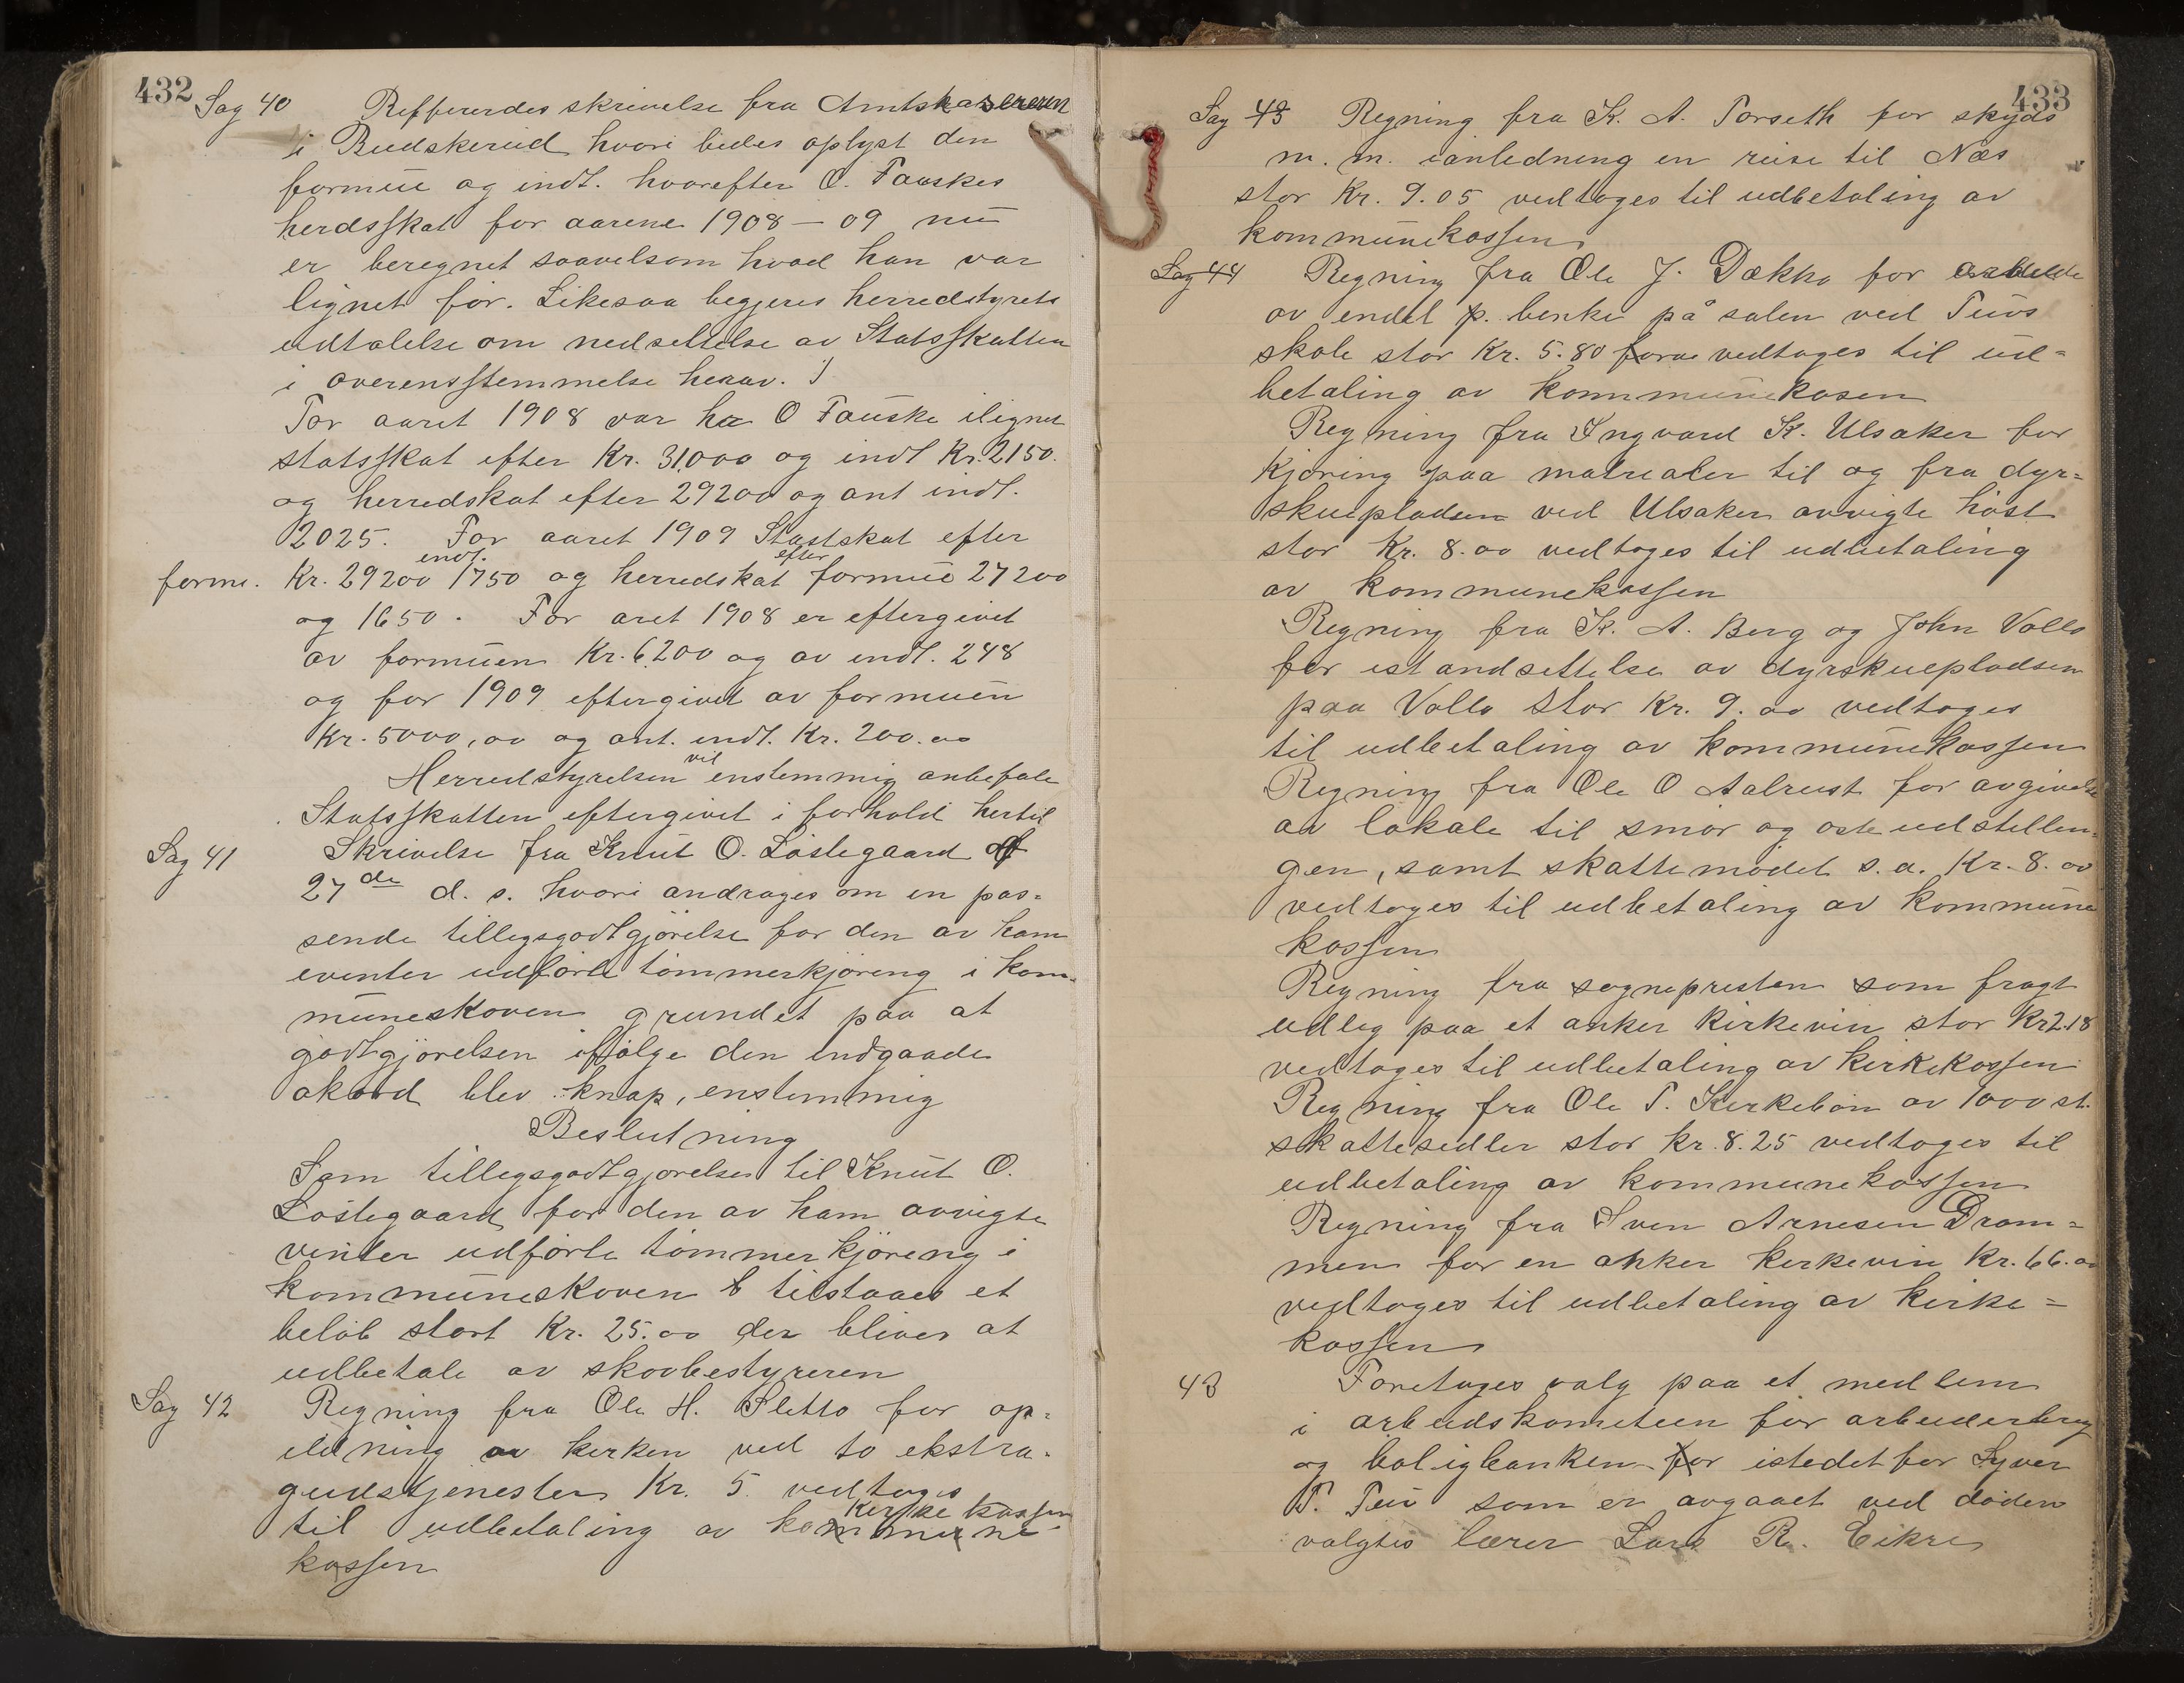 432
Sag 40 Reffererdes skrivelse fra Amtskasereren
i Budskerud hvori bedes oplyst den
formue og indt. hvorefter O. Fauskes
herdsskat for aarene 1908 – 09 nu
er beregnet saavelsom hvad han var
lignet for. Likesaa begjeres herredstyrets
udtalelse om nedsettelse av Statsskatten
i overensstemmelse herav.
For aaret 1908 var O Fauske ilignet
statsskat efter Kr. 31,000 og indt Kr. 2150.
og herredskat efter 29200 og ant indt.
2025. For aaret 1909 Stastskat efter
indt. efter
forme. Kr. 29200 1750 og herredskat formue 27200
og 1650. For aret 1908 er eftergivet
av formuen Kr. 6200 og av indt. 248
og for 1909 eftergivet av formuen
Kr. 5000,00 og ant. indt. Kr. 200.00
vil
Herredstyrelsen enstemmig anbefale
Statsskatten eftergivet i forhold hertil
Sag 41 Skrivelse fra Knut O. Löstegaard af
27de d. s. hvori andrages om en pas=
sende tillegsgodtgjörelse for den av ham
evinter udförte tömmerkjöreng i kom-
muneskoven grundet paa at
godtgjörelsen ifölge den indgaade
akord blev knap, enstemmig
Beslutning
Som tillegsgodtgjorelse til Knut O.
Löstegaard for den av ham avvigte
vinter udförte tömmerkjöreng i
kommuneskoven tilstaaes et
belöb stort Kr. 25.00 der bliver at
udbetale av skovbestyreren
Sag 42 Regning fra Ole H. Sletto for op=
ildning av kirken ved to ekstra-
gudstjenester Kr. 5 vedtoges
kirkekassen
til udbetaling av kommune-
kassen
433
Sag 43 Regning fra K. A. Torseth for skyds
m. m. ianledning en reise til Næs
stor Kr. 9.05 vedtoges til udbetaling av
kommunekassen
Sag 44 Regning fra Ole J. Dækko for
av endel p. benke på salen ved Tuvs
skole stor Kr. 5.80 vedtoges til ud=
betaling av kommunekasen
Regning fra Ingvard K. Ulsaker for
Kjöring paa matrealer til og fra dyr=
skuepladsen ved Ulsaker avvigte höst
stor Kr. 8.00 vedtoges til udbetaling
av kommunekassen
Regning fra K. A. Berg og John Vollo
for istandsettelse av dyrskuepladsen
paa Vollo stor Kr. 9.00 vedtoges
til udbetaling av kommunekassen
Regning fra Ole O Aalrust for avgivelse
av lokale til smör og osteudstellin=
gen, samt skattemödet s.a. Kr. 8.00
vedtoges til udbetaling av kommune
kassen
Regning fra sognepresten som fragt
udleg paa et anker kirkevin stor Kr 2.18
vedtoges til udbetaling av kirkekassen
Regning fra Ole T. Kirkebön av 1000 st.
skattesedler stor kr. 8.25 vedtoges til
udbetaling av kommunekassen
Regning fra Sven Arnesen Dram=
men for en anker kirkevin Kr. 66.00
vedtoges til udbetaling av kirke=
kassen
43 Foretoges valg paa et medlem
i arbeidskometeen for arbeiderbrug
og boligbanken for istedet for Syver
T. Tuv som er avgaaet ved döden
valgtes lærer Lars R. Eikre